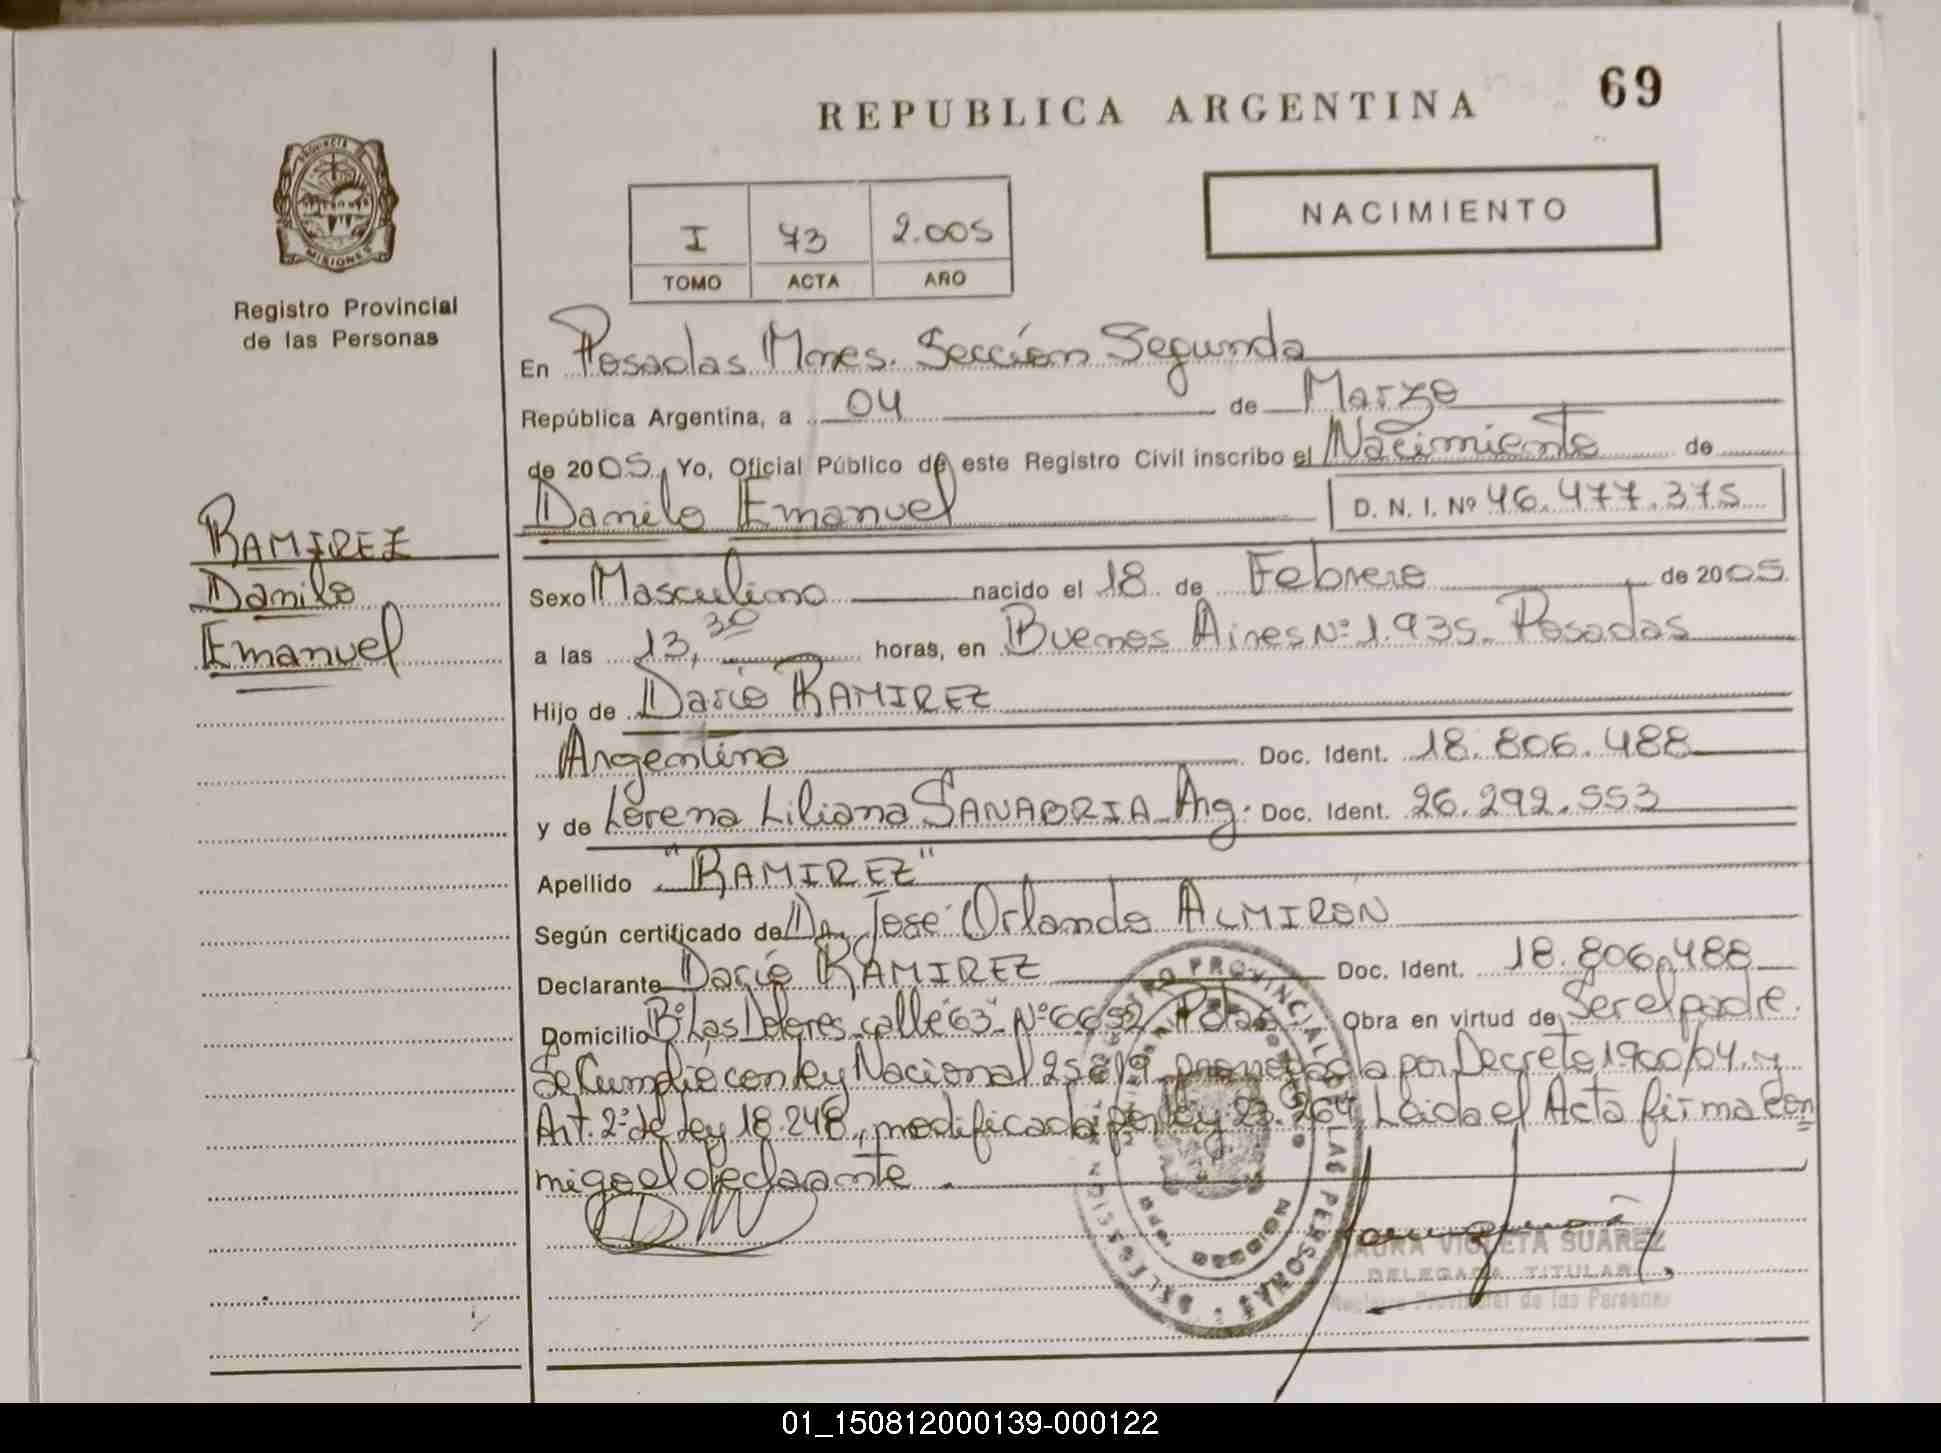 69
REPUBLICA ARGENTINA
NACIMIENTO
PROVINCIA DE
MISIONES
Registro Provincial
de las Personas
I 73 2.005
TOMO ACTA AÑO
En Posadas Mnes. Sección Segunda
República Argentina, a 04 de Marzo
de 2005. Yo, Oficial Público de este Registro Civil inscribo el Nacimiento de
Danilo Emanuel D. N. I. Nº 46.477.375
RAMIREZ
Danilo
Emanuel
Sexo Masculino nacido el 18 de Febrero de 2005.
a las 13,30 horas, en Buenos Aires Nº 1.935. Posadas
Hijo de Darío RAMIREZ
Argentina Doc. Ident. 18.806.488
y de Lorena Liliana SANABRIA Arg. Doc. Ident. 26.292.553
Apellido "RAMIREZ"
Según certificado de Dr. José Orlando ALMIRON
Declarante Darío RAMIREZ Doc. Ident. 18.806.488
Domicilio Bº Las Dolores calle 63 Nº 6652 Pdas Obra en virtud de Ser el padre.
Se Cumplió con ley Nacional 25819 por Decreto 1900/04 y
Art. 2º de ley 18.248, modificada por ley 23.264 Leida el Acta firma con
migo el declarante.
LAURA VIOLETA SUAREZ
DELEGADA TITULAR
Registro Provincial de las Personas
01_150812000139-000122